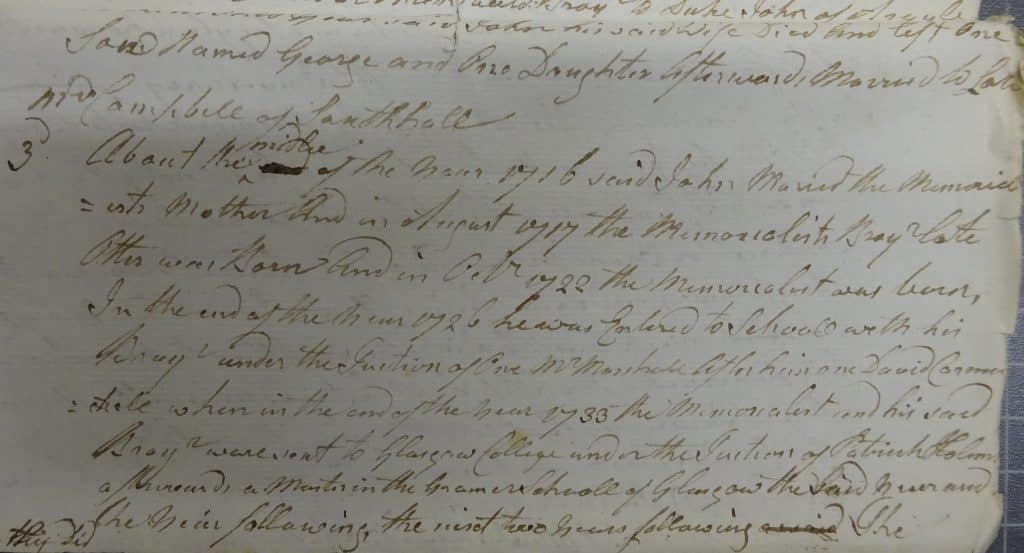 to Duke John of Argyle
John his said Wife Died and left One
Son Named George and One Daughter Afterwards Married to Late
Mr Campbell of Southhall
3 About the midle of the Year 1716 said John Maried the Memorial
=ists Mother And in August 1717 the Memorialists Broyr late
Otter was Born And in Octbr 1722 the Memorialist was born,
In the end of the Year 1726 he was Entered to School with his
Broyr under the Tuition of One Mr Marshall After him one David Carmi
=chell when in the end of the Year 1733 the Memorialist and his said
Broyr were sent to Glasgow College under the Tuition of Patrick
afterwards a Master in the Gramer Schooll of Glasgow the said Year and
the Year following, the next two Years following The
they did